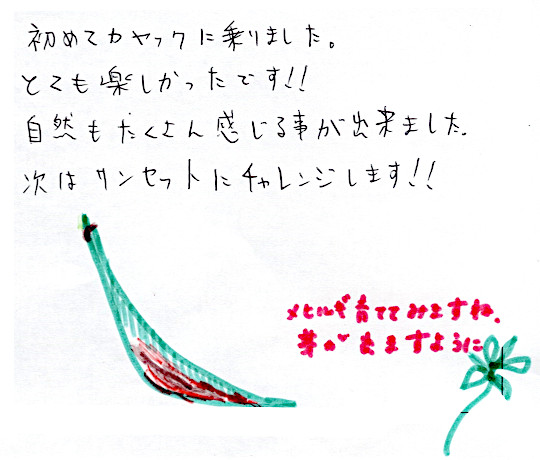 初めてカヤックに乗りました。
とても楽しかったです!!
自然もたくさん感じる事が出来ました.
次はサンセットにチャレンジします!!
メヒルギ育ててみますね.
芽が出ますように